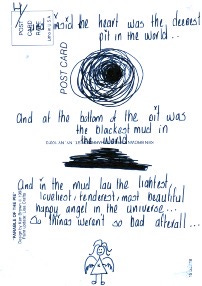 Inside the heart was the deepest
pit in the world...
POST CARD
And at the bottom of the pit was
the blackest mud in
the world
And in the mud lay the lightest,
loveliest, tenderest, most beautiful
happy angel in the universe...
So things weren't so bad afterall...